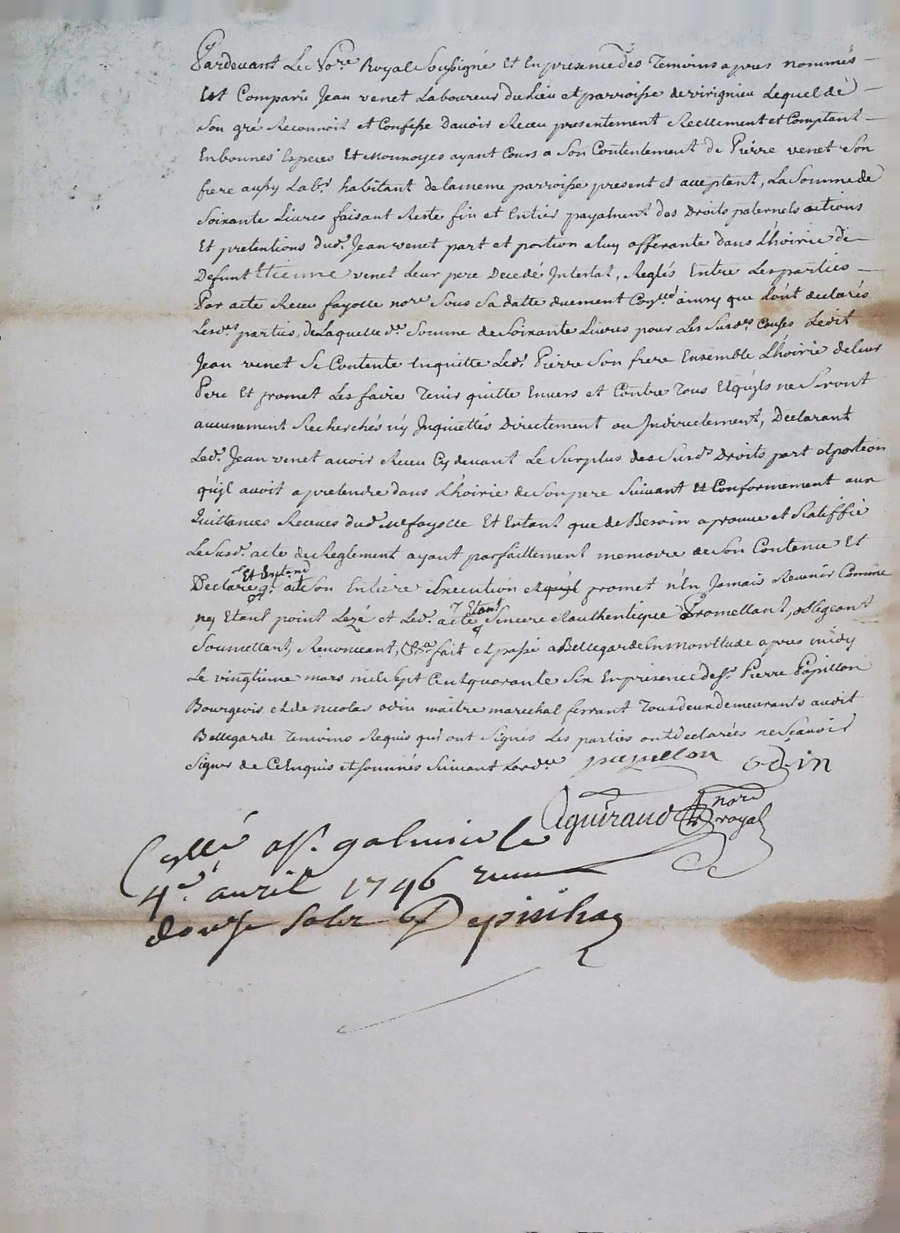 Pardevant Le No.re Royal Soussigné Et En présence des Temoins apres nommés
Est Comparu Jean venet Laboureur du Lieu et parroisse de virignieu Lequel de
Son gré Reconnoit et Confesse Davoir Receu presentement Réellement et Comptant
En bonnes Especes Et monnoyes ayant Cours a Son Contentement de Pierre venet Son
frere aussy Lab.r habitant de la meme parroisse present et acceptant, La Somme de
Soixante Livres faisant Reste fin et Entier payement des Droits paternels actions
Et pretentions dud.t Jean venet part et portion a luy afferante dans L'hoirie de
Defunt Etienne venet Leur pere Decedé Intestat, Reglés Entre Les parties
Par acte Receu fayolle nore Sous Sa datte duement Con.llé ainsy que l'ont declarés
Lesd.es parties, de Laquelle d.e Somme de Soixante Livres pour Les Susd.es Causes Ledit
Jean venet Se Contente Enquitte Led.t Pierre Son frere Ensemble L'hoirie de leur
Pere Et promet Les faire Tenir quitte Envers et Contre Tous Et qu'yls ne Seront
aucunement Recherchés ny Inquiettés Directement ou Indirectement, Declarant
Led.t Jean venet avoir Receu Cy devant Le Surplus des Susd.s Droits part et portion
qu'yl avoit a pretendre dans L'hoirie de Son pere Suivant Et Conformement aux
Quittances Receues dud.t Me fayolle Et Entant que de Besoin aprouve et Ratiffie
Le Susd.t acte de Reglement ayant parfaittement memoire de Son Contenu Et
Et Entend
Declare q. a Son Entiere Execution et qu'yl promet n'En Jamais Revenir Comme
ny Etant point Lezé et Led.t acte Etant Sincere et authentique Promettant, obligeant
Soumettant, Renonceant, fait et passé a Bellegarde En montStude apres midy
Le vingtieme mars mil Sept Cent quarante Six En présence de S.r Pierre Papillon
Bourgeois et de nicolas odin maitre marechal ferrant Tous deux demeurants audit
Bellegarde Temoins Requis qui ont Signés Les parties ont Declarées ne Scavoir
Signer de Ce Enquis et Sommés Suivant Lord.ce papillon odin
Aguiraud nore royal
Con.llé a S.t galmier le
4.e avril 1746 reçu
douze Sols Depisihaz